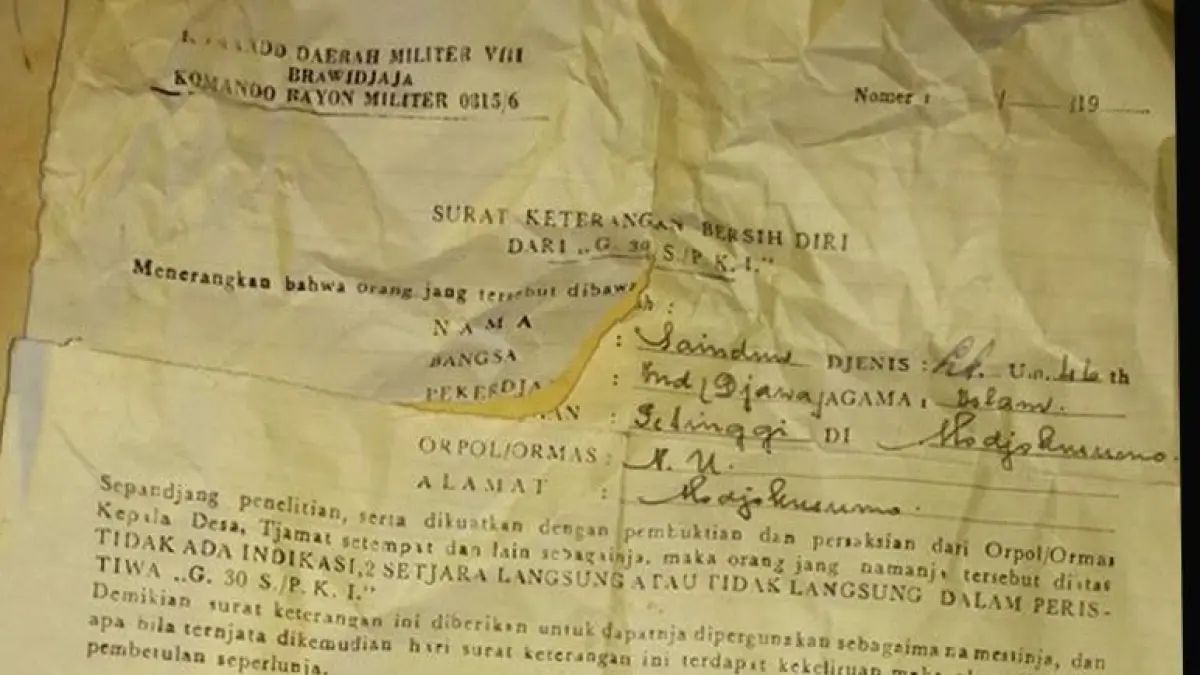 KOMANDO DAERAH MILITER VIII
BRAWIDJAJA
KOMANDO RAYON MILITER 0815/6
Nomer : / 19
SURAT KETERANGAN BERSIH DIRI
DARI „G. 30 S./P. K. I."
Menerangkan bahwa orang jang tersebut dibawah :
NAMA : DJENIS : Lk. U.n. 46 th
BANGSA : Ind/Djawa AGAMA : Islam.
PEKERDJAAN : Petinggi DI Modjokusumo.
ORPOL/ORMAS : N. U.
ALAMAT : Modjokusumo.
Sepandjang penelitian, serta dikuatkan dengan pembuktian dan persaksian dari Orpol/Ormas
Kepala Desa, Tjamat setempat dan lain sebagainja, maka orang jang namanja tersebut diatas
TIDAK ADA INDIKASI,2 SETJARA LANGSUNG ATAU TIDAK LANGSUNG DALAM PERIS-
TIWA „G. 30 S./P. K. I."
Demikian surat keterangan ini diberikan untuk dapatnja dipergunakan sebagaimana mestinja, dan
apa bila ternjata dikemudian hari surat keterangan ini terdapat kekeliruan maka
pembetulan seperlunja.